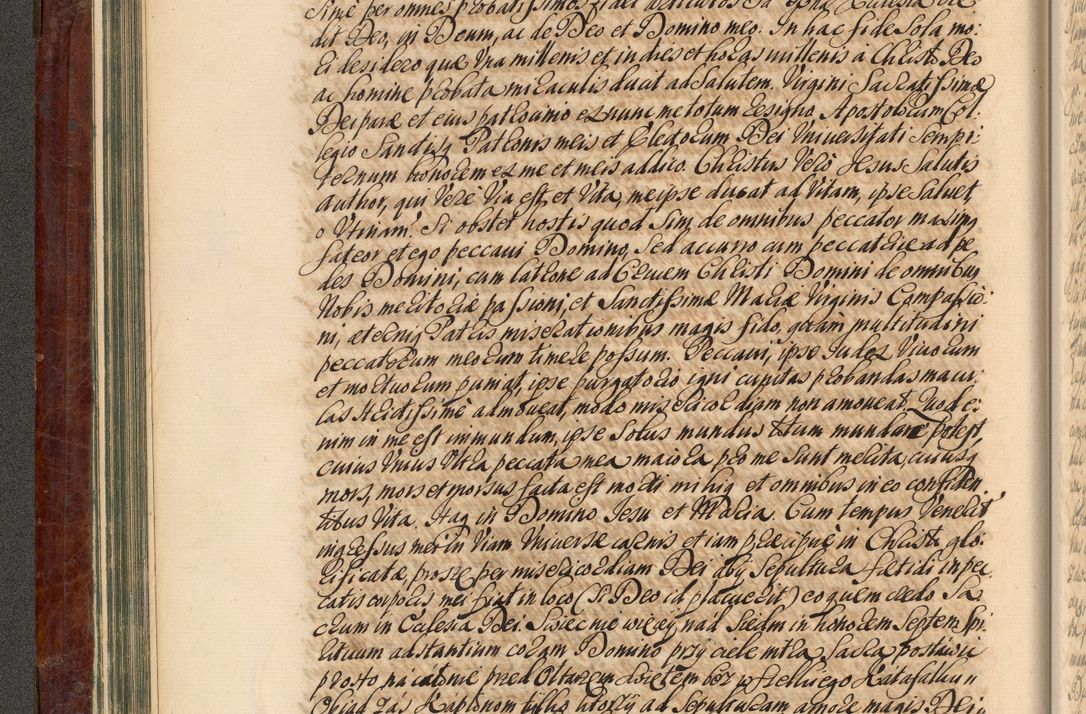 Sime per omnes probatissimos
dit Deo, in Deum, ac de Deo et Domino meo. In hac fide sola mo:
ri desidero quæ una millenis et in dies et horas millenis à Christo Deo
ac homine probata miraculis ducit ad salutem. Virgini Sacratissimæ
Deiparæ et eius patrocinio ex nunc me totum resigno, Apostolorum Col:
legio Sanctisq Patronis meis et Electorum Dei Universitati Sempi:
ternum honorem ex me et meis addico. Christus Verò Jesus Salutis
author, qui Vere Via est, et Vita, me ipse ducat ad Vitam, ipse Salvet,
o Utinam! Si obstet hostis quod Sim de omnibus peccator maximq
fateor et ego peccavi Domino, Sed accurro cum peccatrice ad pe
des Domini, cum latrone ad Crucem Christi Domini de omnibus
Nobis meritoriæ passioni, et Sanctissimæ Mariæ Virginis Compassio:
ni, æterniq Patris miserationibus magis fido, quam multitudini
peccatorum meorum timere possum. Peccavi, ipse Judex Vivorum
et mortuorum puniat, ipse purgatorio igni cupitas probandas macu:
las Acidissimè admoveat, modo misericordiam non amoveat. Quod e:
nim in me est immundum, ipse Solus mundus totum mundare potest,
cuius Unius Ultra peccata mea maiora, pro me Sunt merita, cuiusq
mors, mors et morsus facta est morti mihiq et omnibus in eo confiden
tibus Vita. Itaq in Domino Jesu et Maria. Cum tempus Venerit
ingressus mei in Viam Universæ carnis etiam præcipuè in Christo glo:
rificatæ, pro se per misericordiam Dei ibiq Sepultura fætidi in pec
catis corporis mei fiat in loco (Si Deo id placuerit) eo quem credo Sa:
crum in Ecclesia Dei. Swiec nie więcey nad Siedm in honorem Septem Spi
rituum adstantium coram Domino przy ciele intra Sacra postawić
prosto na całonie pred Ołtarzem Swiętem bez wszelkiego Katafalku
Obiad zas Kapłonom tylko ktorzy ad Sepulturam amore magis Dei